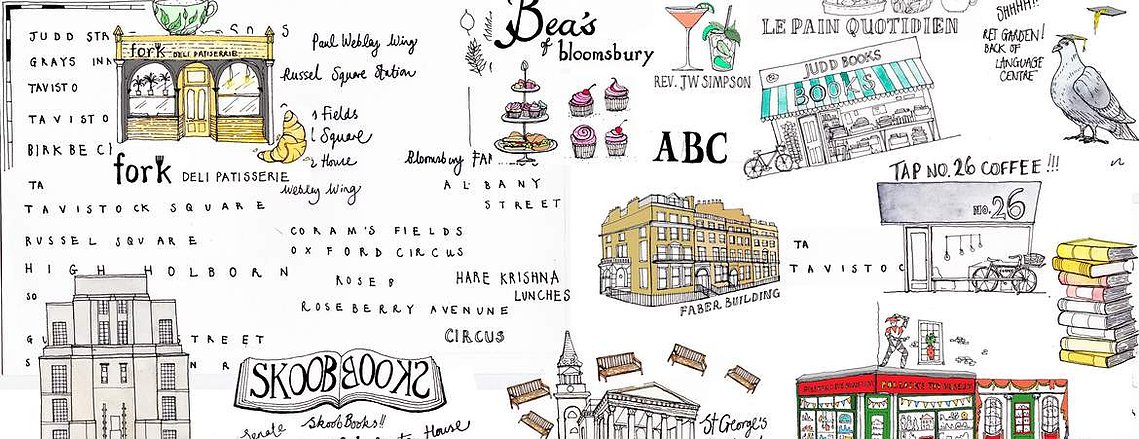 JUDD
GRAYS INN
TAVISTO
TAVISTO
BIRKBECK
fork DELI PATISSERIE
fork DELI PATISSERIE
Paul Webley Wing
Russel Square Station
Fields
Square
House
Webley Wing
TA
TAVISTOCK SQUARE
RUSSEL SQUARE
HIGH HOLBORN
SO
STREET
Bea's
of bloomsbury
Bloomsbury
ALBANY
STREET
CORAM'S FIELDS
OXFORD CIRCUS
ROSE B
ROSEBERRY AVENUNE
HARE KRISHNA
LUNCHES
CIRCUS
SKOOB BOOKS
SkoobBooks!!
Senate
House
REV. JW SIMPSON
ABC
LE PAIN QUOTIDIEN
JUDD BOOKS
BOOKS
SHHHH!!
RET GARDEN!
BACK OF
LANGUAGE
CENTRE
TAP NO. 26 COFFEE!!!
NO. 26
FABER BUILDING
TA
TAVISTOC
St George's